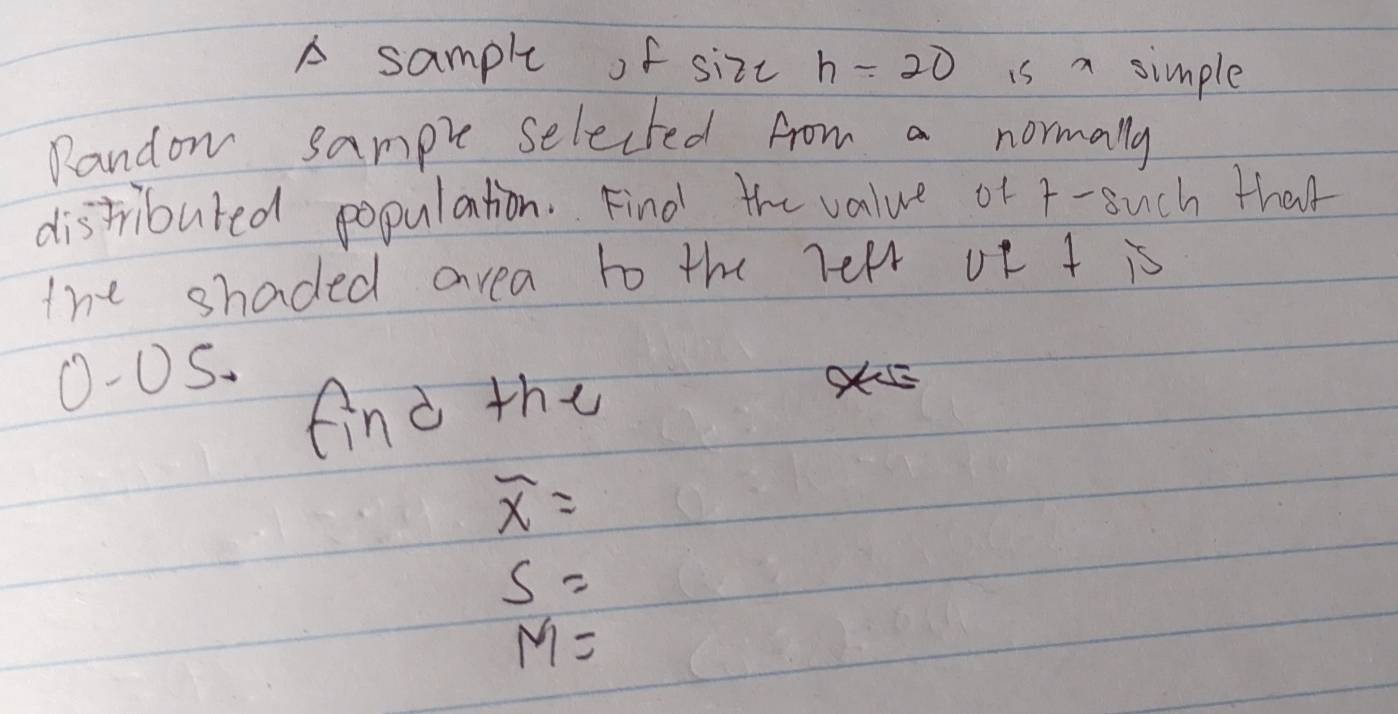 A sample of size n = 20 is a simple
Random sample selected from a normally
distributed population. Find the value of t-such that
the shaded area to the left of t is
0-05.
find the
x̄ =
S =
M =